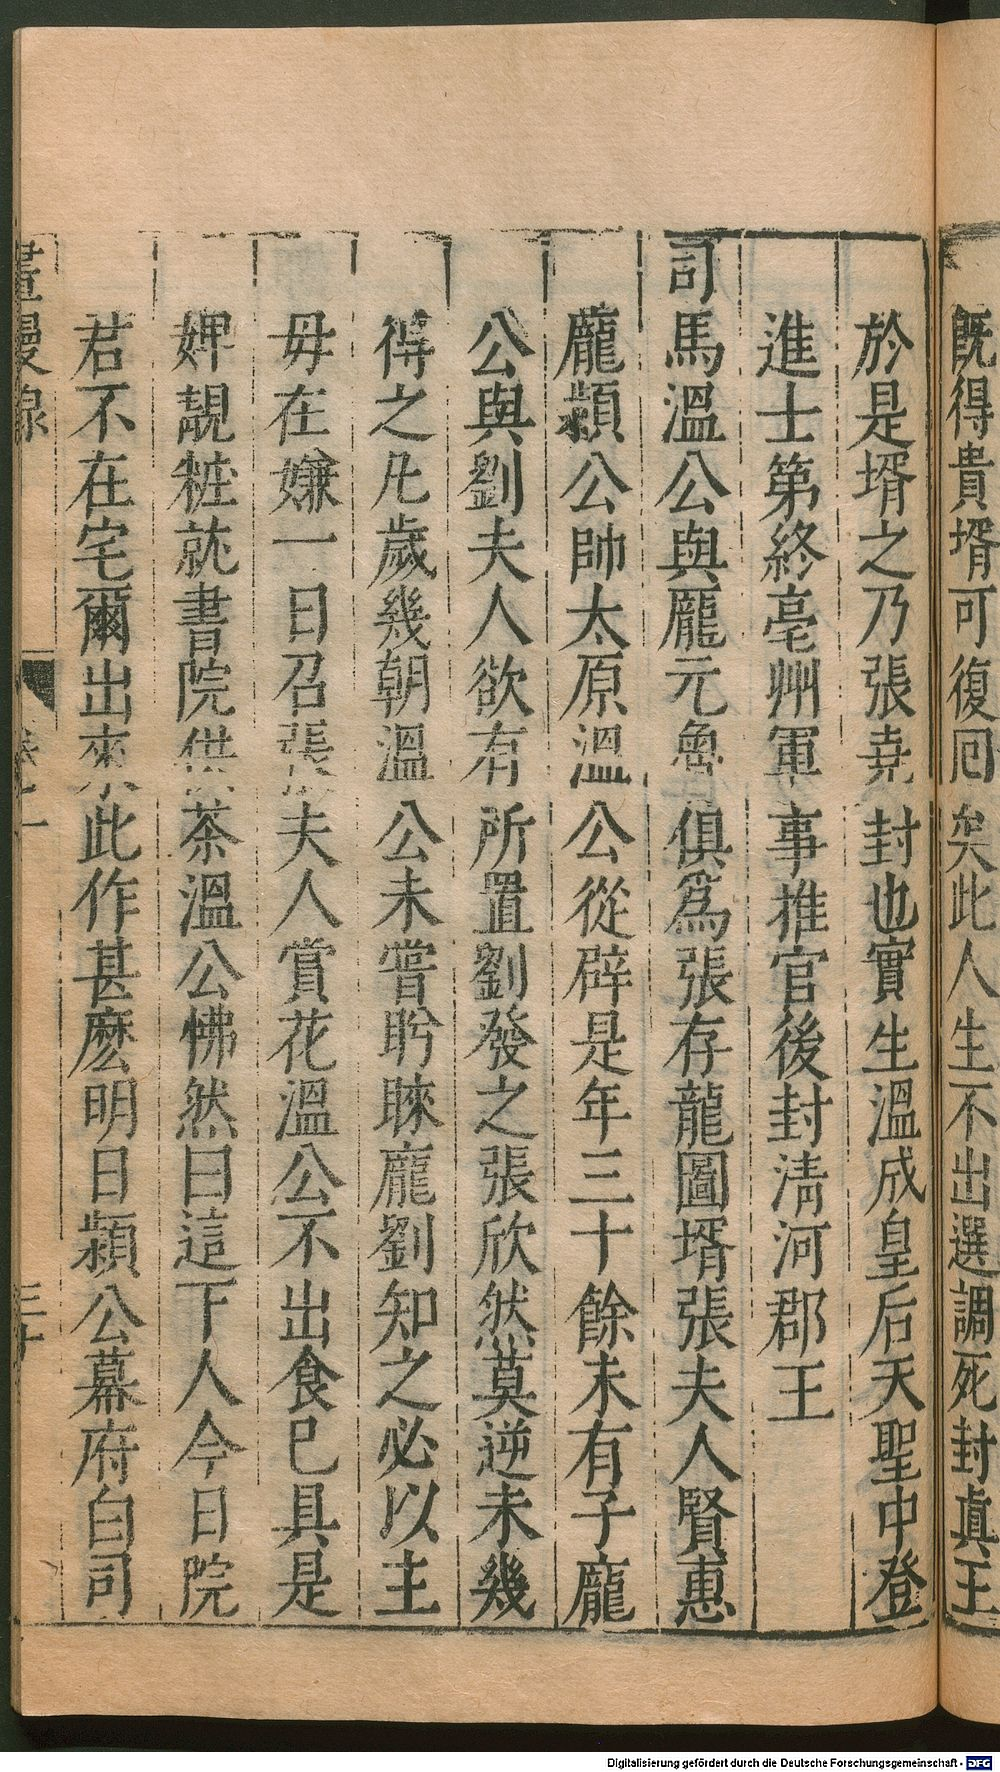 既得貴壻可復回矣此人生不出選調死封眞王
於是壻之乃張堯封也實生溫成皇后天聖中登
進士第終亳州軍事推官後封淸河郡王
司馬溫公與龐元魯俱爲張存龍圖壻張夫人賢惠
龐潁公帥太原溫公從辟是年三十餘未有子龐
公與劉夫人欲有所置劉發之張欣然莫逆未幾
得之凡歲幾朝溫公未嘗盻睞龐劉知之必以主
母在嫌一日召張夫人賞花溫公不出食已具是
婢靚粧就書院供茶溫公怫然曰這下人今日院
君不在宅爾出來此作甚麽明日潁公幕府白司
畫墁錄
卷之一
三十
Digitalisierung gefördert durch die Deutsche Forschungsgemeinschaft - DFG